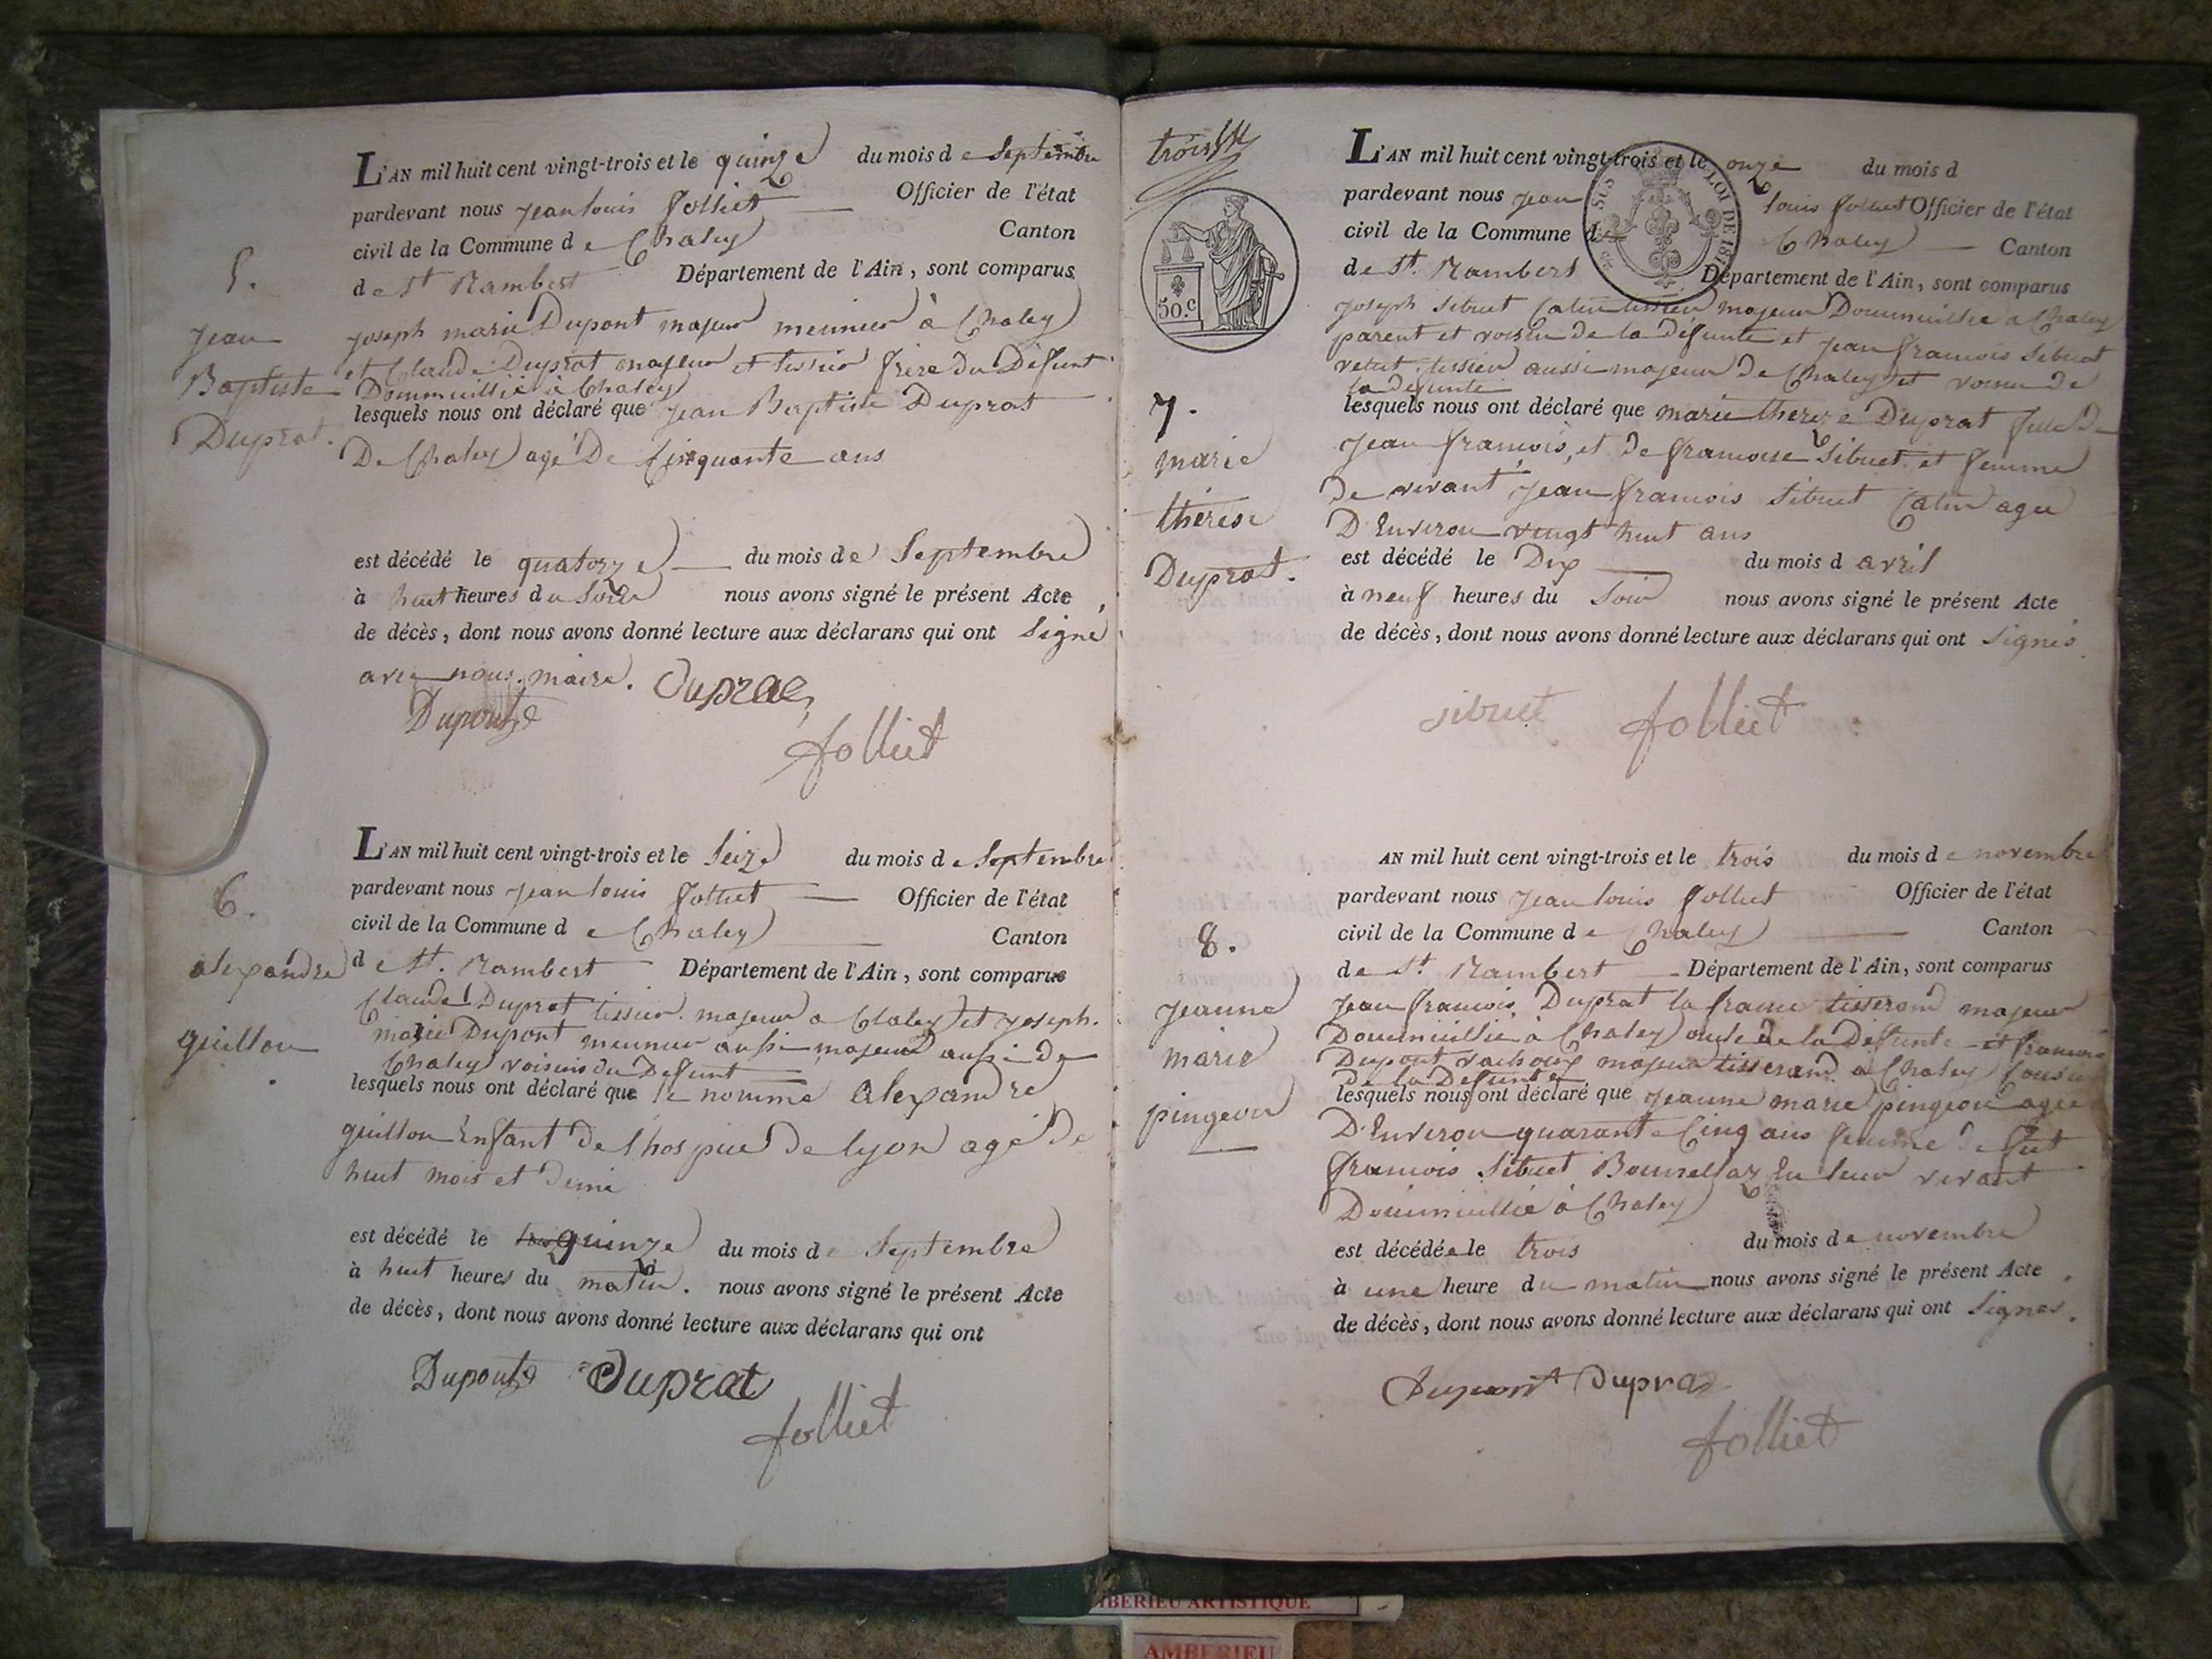 5.
Jean
Baptiste
Duprat.
L'AN mil huit cent vingt-trois et le quinze du mois de Septembre
pardevant nous Jean louis folliet Officier de l'état
civil de la Commune de Chaley Canton
de St Rambert Département de l'Ain, sont comparus
joseph marie Dupont majeur meunier à Chaley
et Claude Duprat majeur et tissier frère du Défunt
Dommicillié à Chaley
lesquels nous ont déclaré que jean Baptiste Duprat
De Chaley agé De Cinquante ans
est décédé le quatorze du mois de Septembre
à huit heures du Soir nous avons signé le présent Acte
de décès, dont nous avons donné lecture aux déclarans qui ont Signé
avec nous maire. Duprat
Dupont
folliet
6.
alexandre
guillon
L'AN mil huit cent vingt-trois et le Seize du mois de Septembre
pardevant nous Jean louis folliet Officier de l'état
civil de la Commune de Chaley Canton
de St. Rambert Département de l'Ain, sont comparus
Claude Duprat tissier majeur a Chaley et joseph
marie Dupont meunier aussi majeur aussi De
Chaley voisins du Defunt
lesquels nous ont déclaré que le nommé Alexandre
guillon Enfant de l'hospice De lyon agé De
huit mois et Demi
est décédé le quinze du mois de Septembre
à huit heures du matin. nous avons signé le présent Acte
de décès, dont nous avons donné lecture aux déclarans qui ont
Dupont Duprat
folliet
trois
50.c
LOI DE 181
7.
marie
thérèse
Duprat.
L'AN mil huit cent vingt-trois et le onze du mois d
pardevant nous jean louis folliet Officier de l'état
civil de la Commune de Chaley Canton
de St. Rambert Département de l'Ain, sont comparus
joseph Sibuet Catin tissier majeur Dommicillié a Chaley
parent et voisin de la défunte et jean francois Sibuet
tissier aussi majeur De Chaley et voisin de
la défunte
lesquels nous ont déclaré que marie thereze Duprat fille De
jean francois, et De francoise Sibuet et femme
De vivant jean francois Sibuet Catin agée
D'Environ vingt huit ans
est décédé le Dix du mois d avril
à neuf heures du Soir nous avons signé le présent Acte
de décès, dont nous avons donné lecture aux déclarans qui ont Signés
sibuet folliet
8.
jeanne
marie
pingeon
AN mil huit cent vingt-trois et le trois du mois de novembre
pardevant nous Jean louis folliet Officier de l'état
civil de la Commune de Chaley Canton
de St. Rambert Département de l'Ain, sont comparus
jean francois Duprat la france tisserand majeur
Dommicillié à Chaley oncle De la Défunte et francois
Dupont majeur tisserand a Chaley Cousin
De la Defunte
lesquels nous ont déclaré que jeanne marie pingeon agée
D'Environ quarante Cinq ans femme De fut
francois Sibuet En leur vivant
Dommicillié à Chaley
est décédée le trois du mois de novembre
à une heure du matin nous avons signé le présent Acte
de décès, dont nous avons donné lecture aux déclarans qui ont Signés.
Dupont Dupraz
folliet
AMBERIEU ARTISTIQUE
AMBERIEU